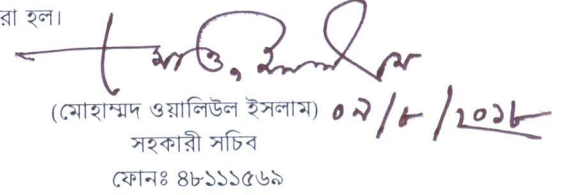 রা হল।
(মোহাম্মদ ওয়ালিউল ইসলাম) ০৯/৮/২০১৮
সহকারী সচিব
ফোনঃ ৪৮১১১৫৬৯